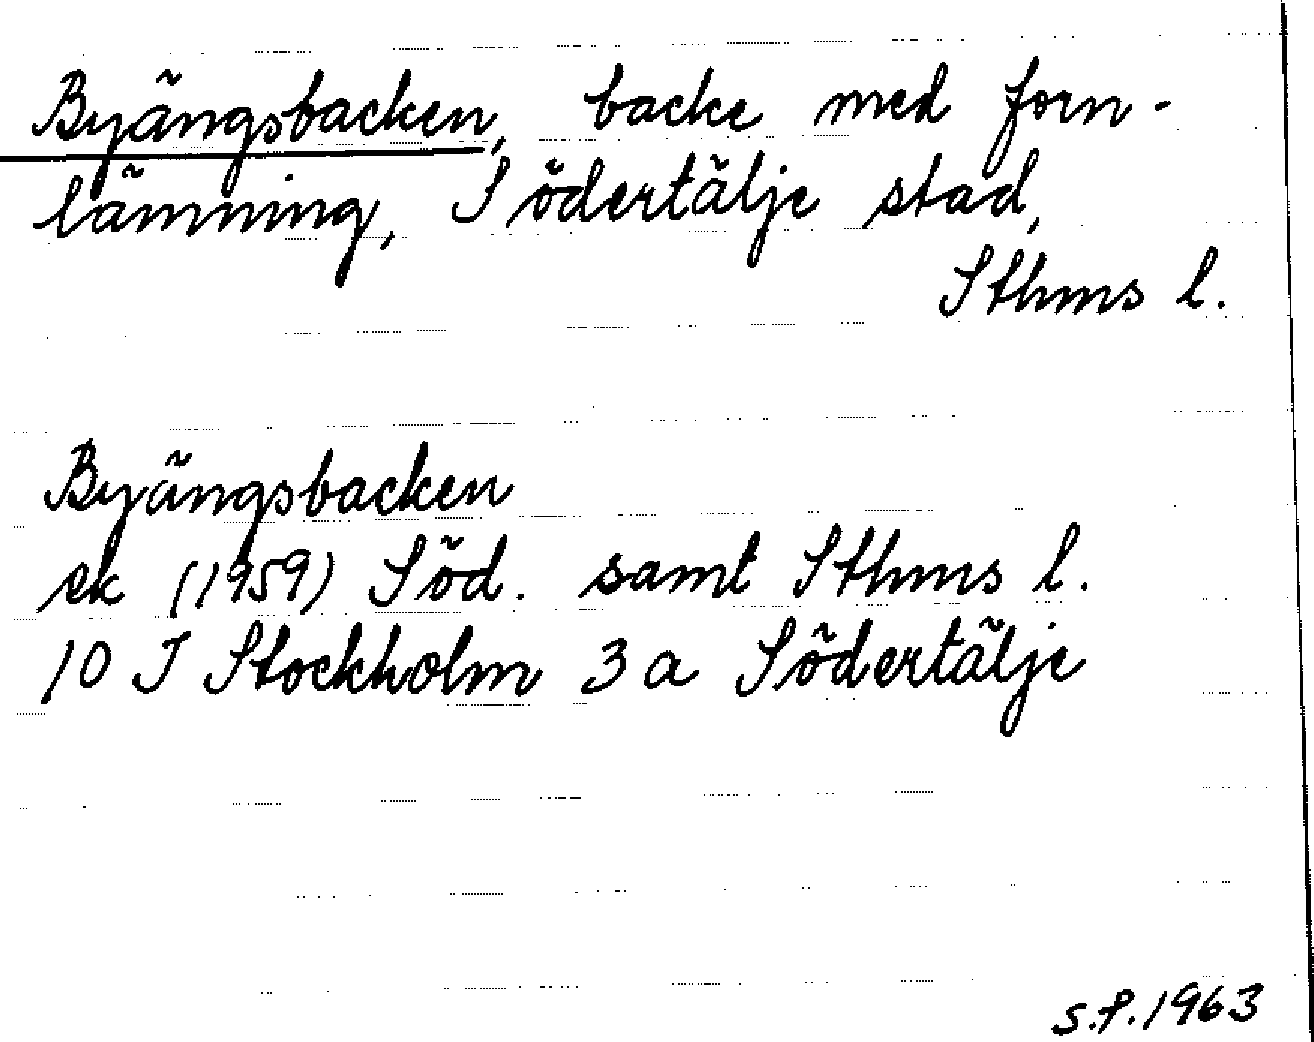 Byängsbacken, backe med forn-
lämning, Södertälje stad,
Sthms l.
Byängsbacken
ek (1959) Söd. samt Sthms l.
10 I Stockholm 3 a Södertälje
S.P. 1963